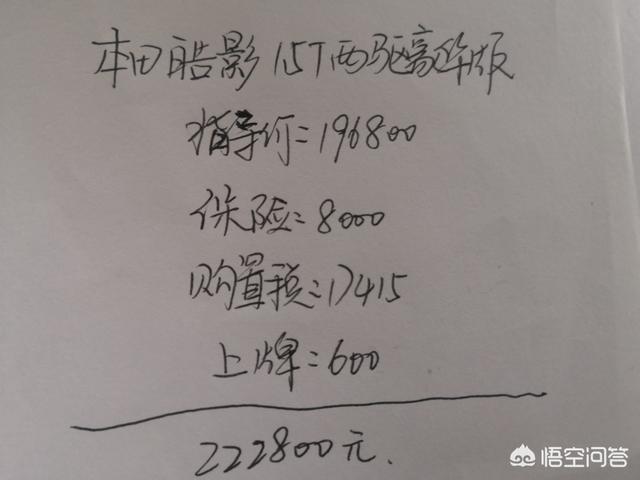 本田皓影 1.5T两驱豪华版
指导价=196800
保险=8000
购置税=17415
上牌=600
222800元.
悟空问答